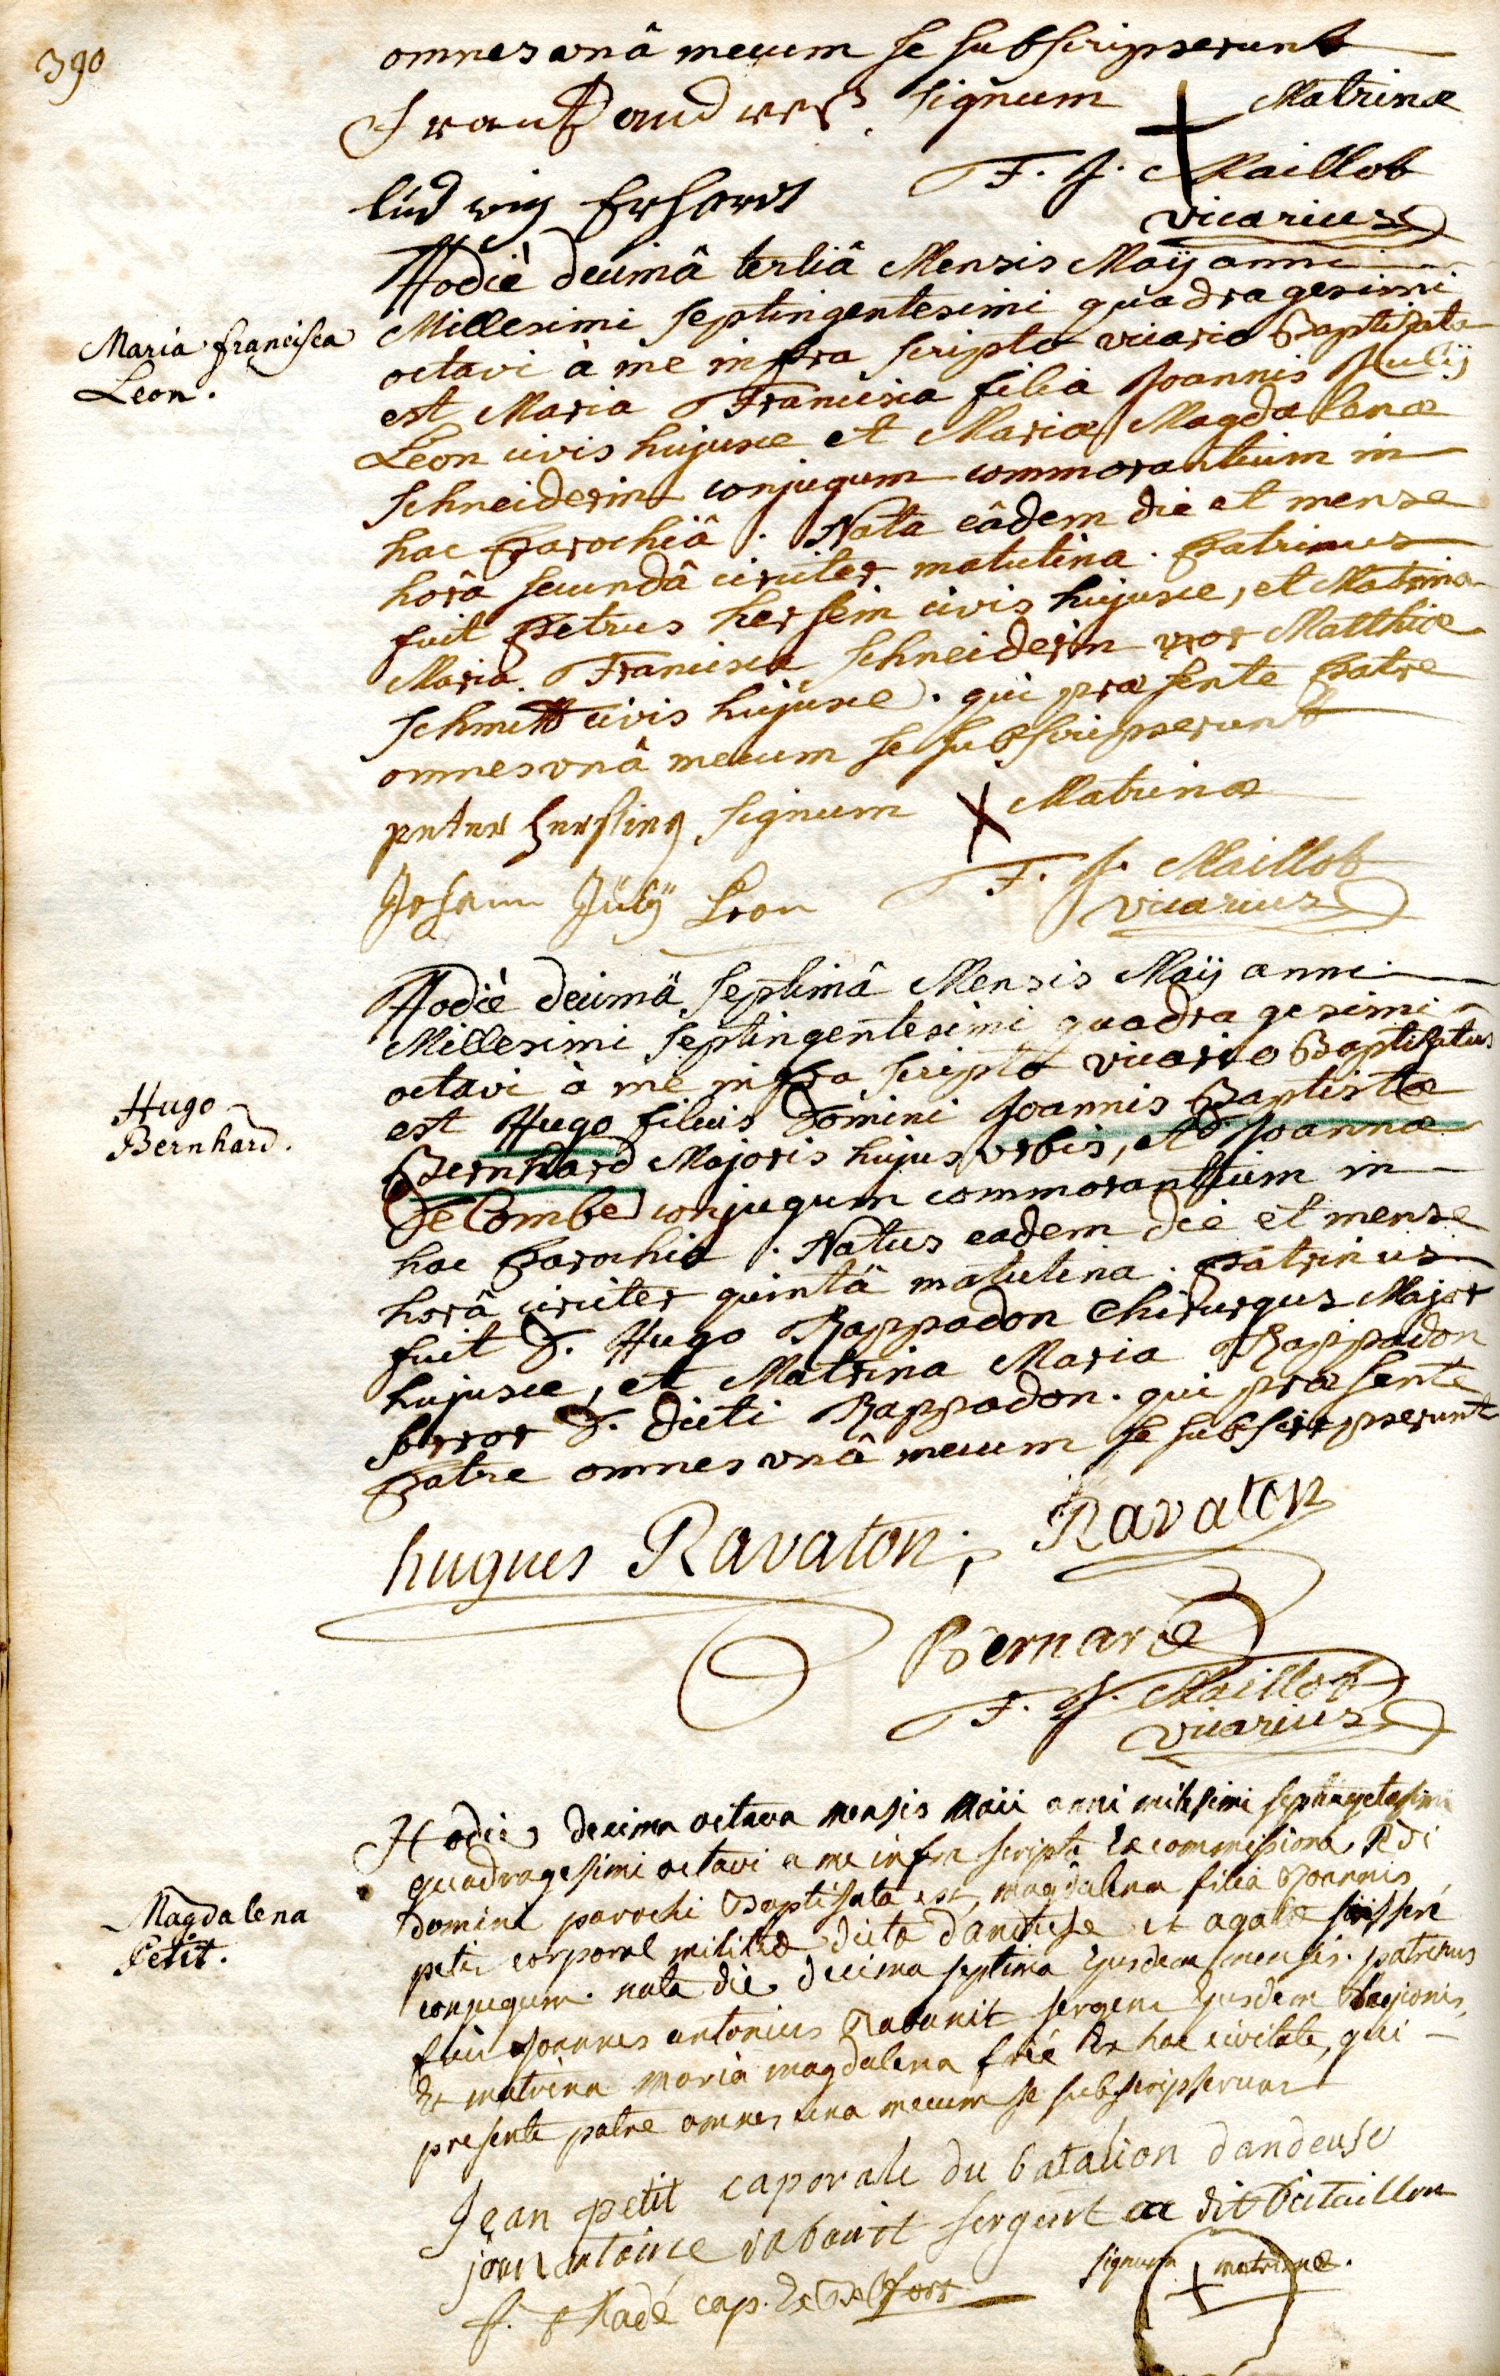 390
omnes unâ mecum se subscripserunt
Frantz andres signum Matrinæ
ludwig Erhardt F. J. Maillot
vicarius
Maria francisca
Leon.
Hodiè decimâ tertiâ Mensis Maÿ anni
Millesimi septingentesimi quadragesimi
octavi à me infra scripto vicario Baptizata
est Maria Francisca filia Joannis Julÿ
Leon civis hujusce et Mariæ Magdalenæ
Schneiderin conjugum commorantium in
hac Parochiâ. Nata eâdem die et mense
horâ secundâ circiter matutina. Patrinus
fuit Petrus hersein civis hujusce, et Matrina
Maria Francisca Schneiderin uxor Matthiæ
Schmitt civis hujusce. qui præsente Patre
omnes unâ mecum se subscripserunt
peter hersting signum Matrinæ
Johann Jülÿ Leon F. J. Maillot
vicarius
Hugo
Bernhard.
Hodiè decimâ septimâ Mensis Maÿ anni
Millesimi septingentesimi quadragesimi
octavi à me infra scripto vicario Baptizatus
est Hugo filius Domini Joannis Baptistæ
Bernhard Majoris hujus urbis, et D. Joannæ
De Combe conjugum commorantium in
hac Parochia. Natus eadem die et mense
horâ circiter quintâ matutina. Patrinus
fuit D. Hugo Rappadon Chirurgus Major
hujusce, et Matrina Maria Rappadon
soror D. dicti Rappadon. qui præsente
Patre omnes unâ mecum se subscripserunt
hugues Ravaton; Ravaton
Bernard
F. J. Maillot
vicarius
Magdalena
Petit.
Hodie decima octava mensis Maii anni milesimi septingetesimi
quadragesimi octavi a me infra scripto ex commissione Rdi
domini parochi Baptisata est magdalena filia Joannis
petit corporal militiæ dicta dandeuse et agatæ
conjugum. nata die decima septima ejusdem mensis. patrinus
fuit Joannes antonius Rabanit sergent ejusdem Legionis,
et matrina maria magdalena frié ex hac civitate, qui
presente patre omnes una mecum se subscripserunt
Jean petit caporale du batalion dandeuse
jean antoine rabanit sergent au dit bataillon
signum matrinæ.
f. Kadé cap.